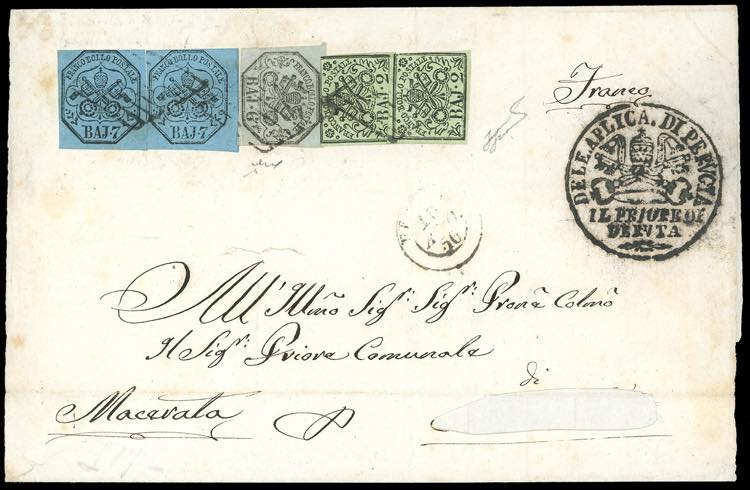 FRANCO BOLLO POSTALE
BAJ·7
FRANCO BOLLO POSTALE
BAJ·7
BAJ
FRANCO BOLLO POSTALE
BAJ·2
FRANCO BOLLO POSTALE
BAJ·2
Franco
DELE APLICA. DI PERVGIA
IL PRIORE DI
DERVTA
56
All' Illmo Sigr. Sigr. Prone Colmo
Il Sigr. Priore Comunale
di
Macerata